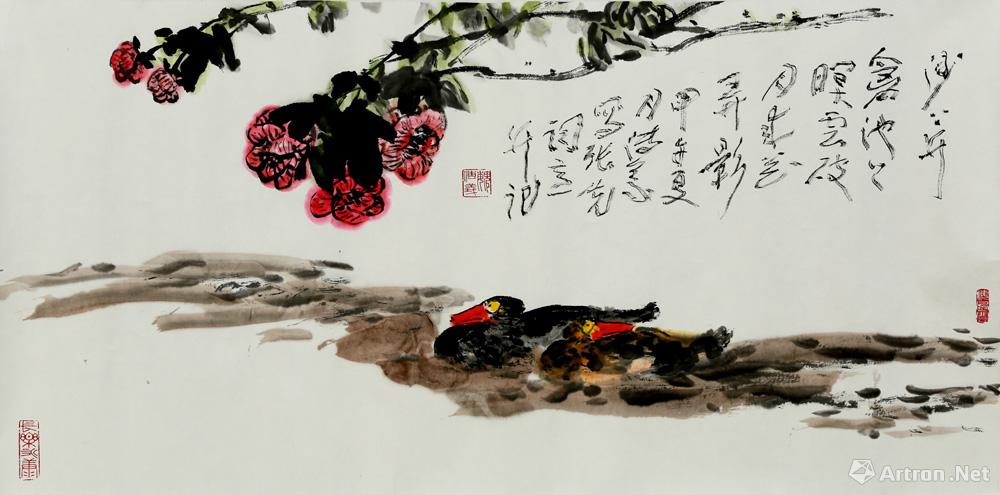 沙上并
禽池上
暝云破
月来花
弄影
甲午夏
月
写张先
词意
并记
Artron.Net